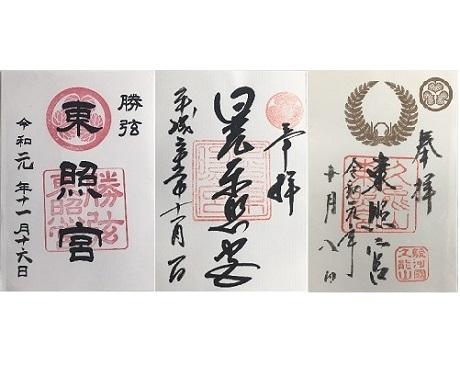 勝弦
東照宮
令和元年十一月十六日
勝弦
東照宮
奉拝
日光東照宮
平成 年十一月
奉拝
東照宮
令和元年
十月八日
駿河國
久能山